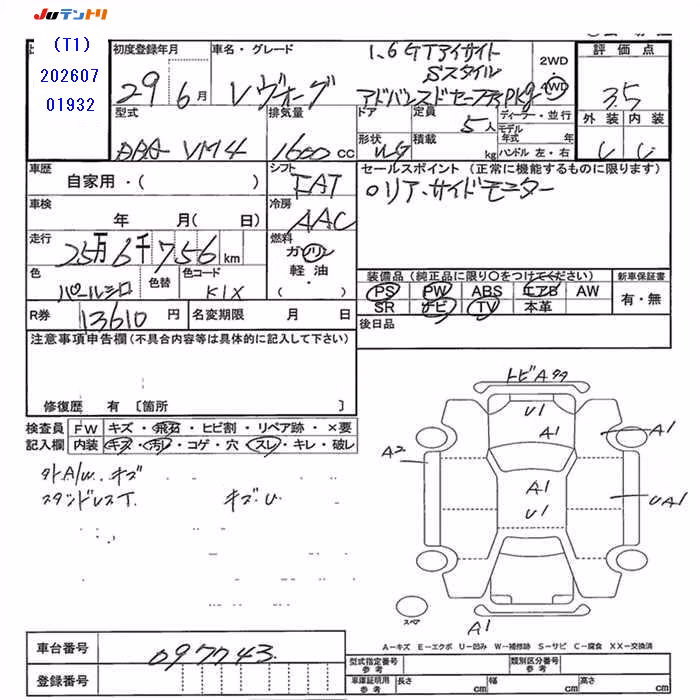 Juテントリ
(T1)
202607
01932
初度登録年月
29 6月
車名・グレード
レヴォーグ
1.6GTアイサイト
Sスタイル
アドバンスドセーフティPkg
2WD
4WD
評価点
3.5
外装 内装
型式
DBA VM4
排気量
1600cc
ドア
形状
WG
定員
5人
積載
kg
ディーラー・並行
モデル年式 年
ハンドル 左・右
車歴
自家用・( )
シフト
FAT
セールスポイント(正常に機能するものに限ります)
○リア、サイドモニター
車検
年 月( 日)
冷房
AAC
走行
25万6千756km
燃料
ガソリン
軽油
・( )
色
パールシロ
色替
色コード
K1X
装備品(純正品に限り○をつけてください)
PS PW ABS エアB AW
SR ナビ TV 本革
新車保証書
有・無
R券
13610円
名変期限 月 日
後日品
注意事項申告欄(不具合内容等は具体的に記入して下さい)
修復歴 有〔箇所 〕
検査員
記入欄
FW キズ・飛石・ヒビ割・リペア跡・×要
内装 キズ・汚れ・コゲ・穴・スレ・キレ・破レ
外A/W キズ
キズU
トビAタタ
U1
A1
A1
A2
A1
U1
UA1
A1
スペア
A-キズ E-エクボ U-凹み W-補修跡 S-サビ C-腐食 XX-交換済
車台番号
097743
登録番号
型式指定番号
参考
類別区分番号
参考
車庫証明用
参考
長さ cm
幅 cm
高さ cm